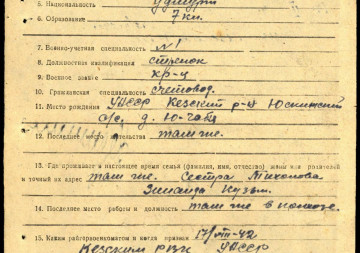 5. Национальность удмурт
6. Образование 7 кл.
7. Военно-учетная специальность №1
8. Должностная квалификация стрелок
9. Военное звание кр-ц
10. Гражданская специальность счетовод.
11. Место рождения УАССР Кезский р-н Юскинский
с/с. д. Ю-
12. Последнее место жительства там же.
13. Где проживает в настоящее время семья (фамилия, имя, отчество) жены или родителей
и точный их адрес там же. Сестра Тихонова
Зинаида Кузьм.
14. Последнее место работы и должность там же в колхозе.
15. Каким райгорвоенкоматом и когда призван 17/VIII-42
Кезским рвк УАССР